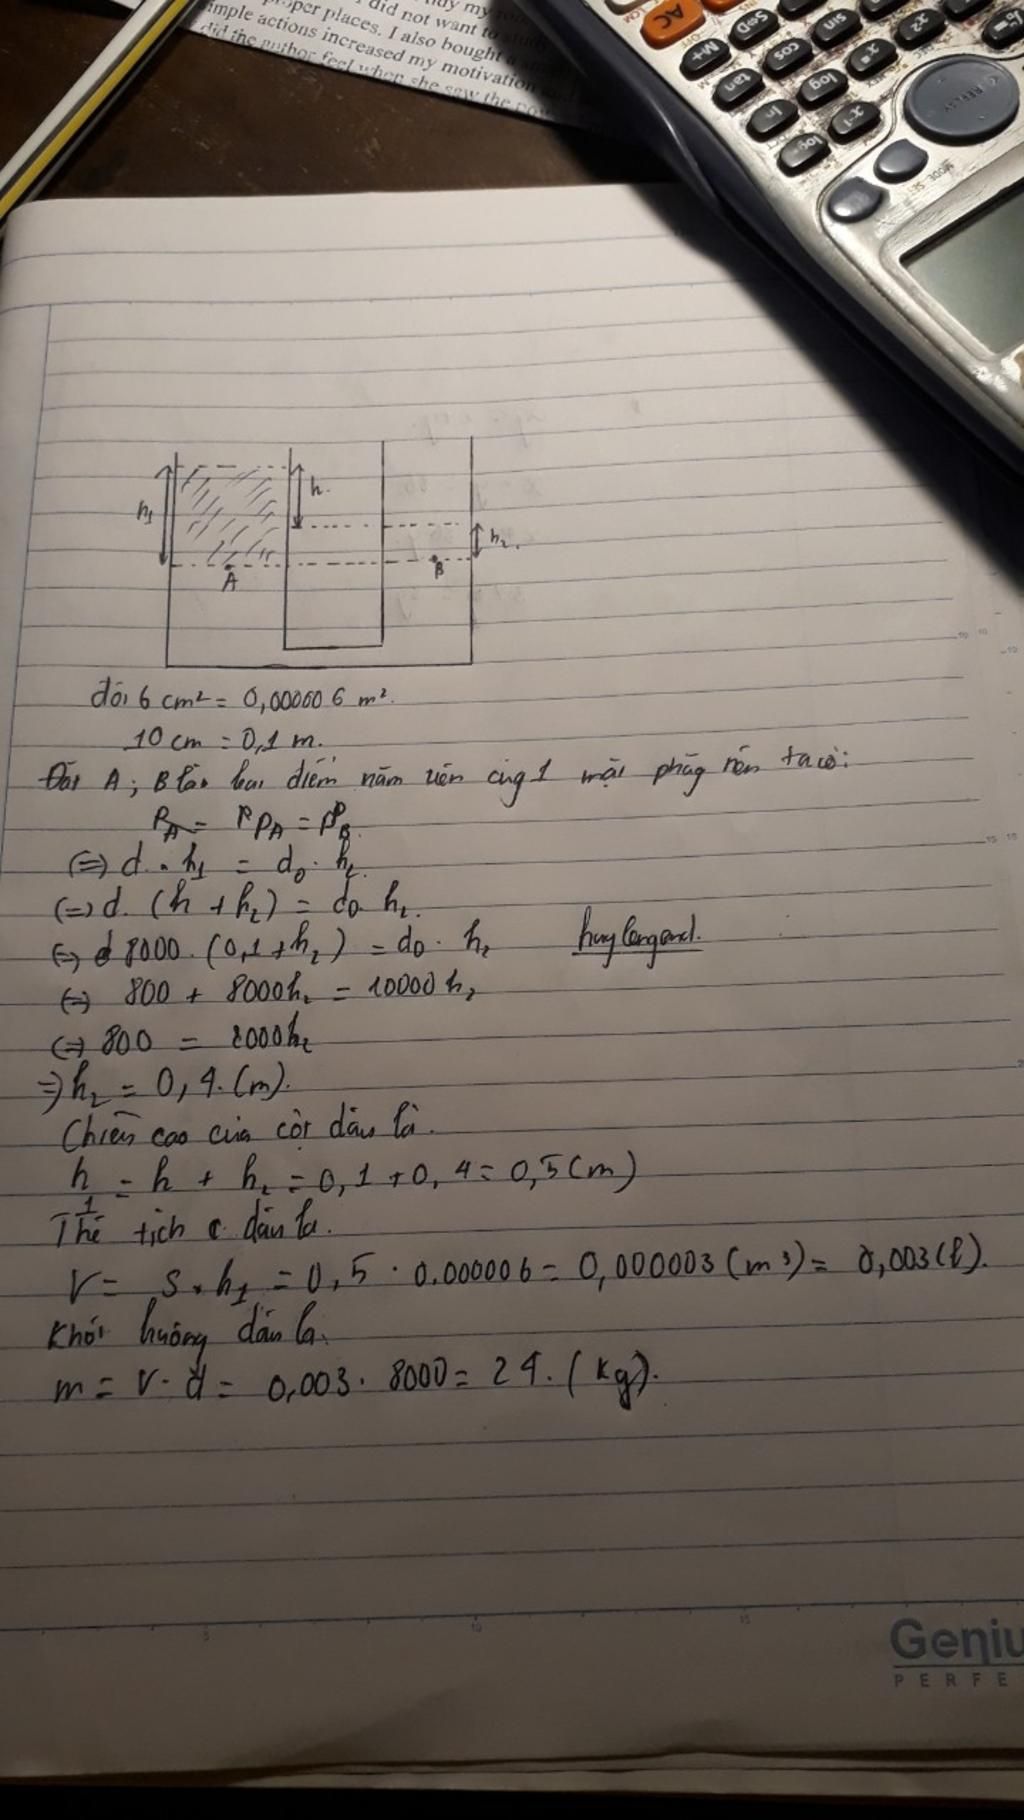 udy my
did not want to study
proper places. I also bought a
imple actions increased my motivation
did the author feel when she saw the
AC
M+
S⇔D
sin
cos
tan
log
ln
x-1
x2
REPLAY
MODE
h1
h.
h2.
A
B
đổi 6 cm² = 0,000006 m².
10 cm = 0,1 m.
Đặt A; B là hai điểm nằm trên cùg 1 mặt phẳg nên ta có:
PA = PA = PB
(=) d . h1 = d0 . h2.
(=) d. (h + h2) = d0 h2.
(=) 8000. (0,1 + h2) = d0 . h2
huylengend.
(=) 800 + 8000h2 = 10000 h2
(=) 800 = 2000h2
=) h2 = 0,4. (m).
Chiều cao của cột dầu là.
h1 = h + h2 = 0,1 + 0,4 = 0,5 (m)
Thể tích dầu là.
V = S . h1 = 0,5 . 0.000006 = 0,000003 (m³) = 0,003 (l).
Khối luông dầu là
m = V . d = 0,003 . 8000 = 24. (kg).
5
10
15
Geniu
PERFE